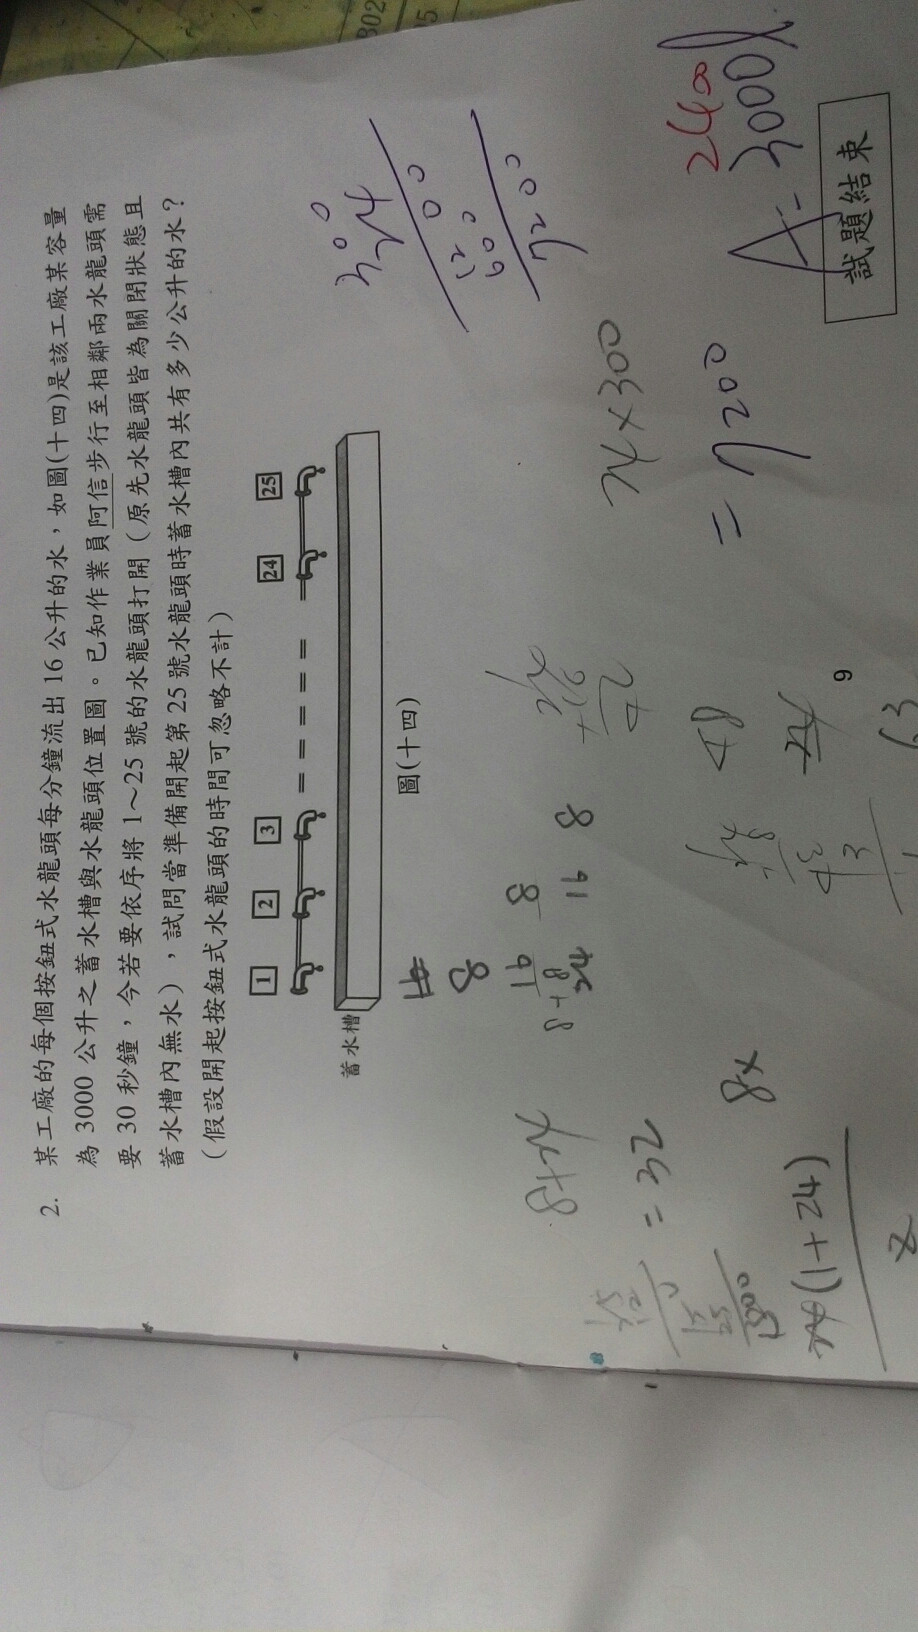 2. 某工廠的每個按鈕式水龍頭每分鐘流出 16 公升的水,如圖(十四)是該工廠某容量
為 3000 公升之蓄水槽與水龍頭位置圖。已知作業員阿信步行至相鄰兩水龍頭需
要 30 秒鐘,今若要依序將 1~25 號的水龍頭打開(原先水龍頭皆為關閉狀態且
蓄水槽內無水),試問當準備開起第 25 號水龍頭時蓄水槽內共有多少公升的水?
(假設開起按鈕式水龍頭的時間可忽略不計)
1 2 3 24 25
蓄水槽
圖(十四)
300
24
1200
600
7200
#
8
8
16 8
8+8
24
8+24
= 32
8x
24(1+24)
2
24×300
= 7200
2400
A- 3000l
試題結束
9